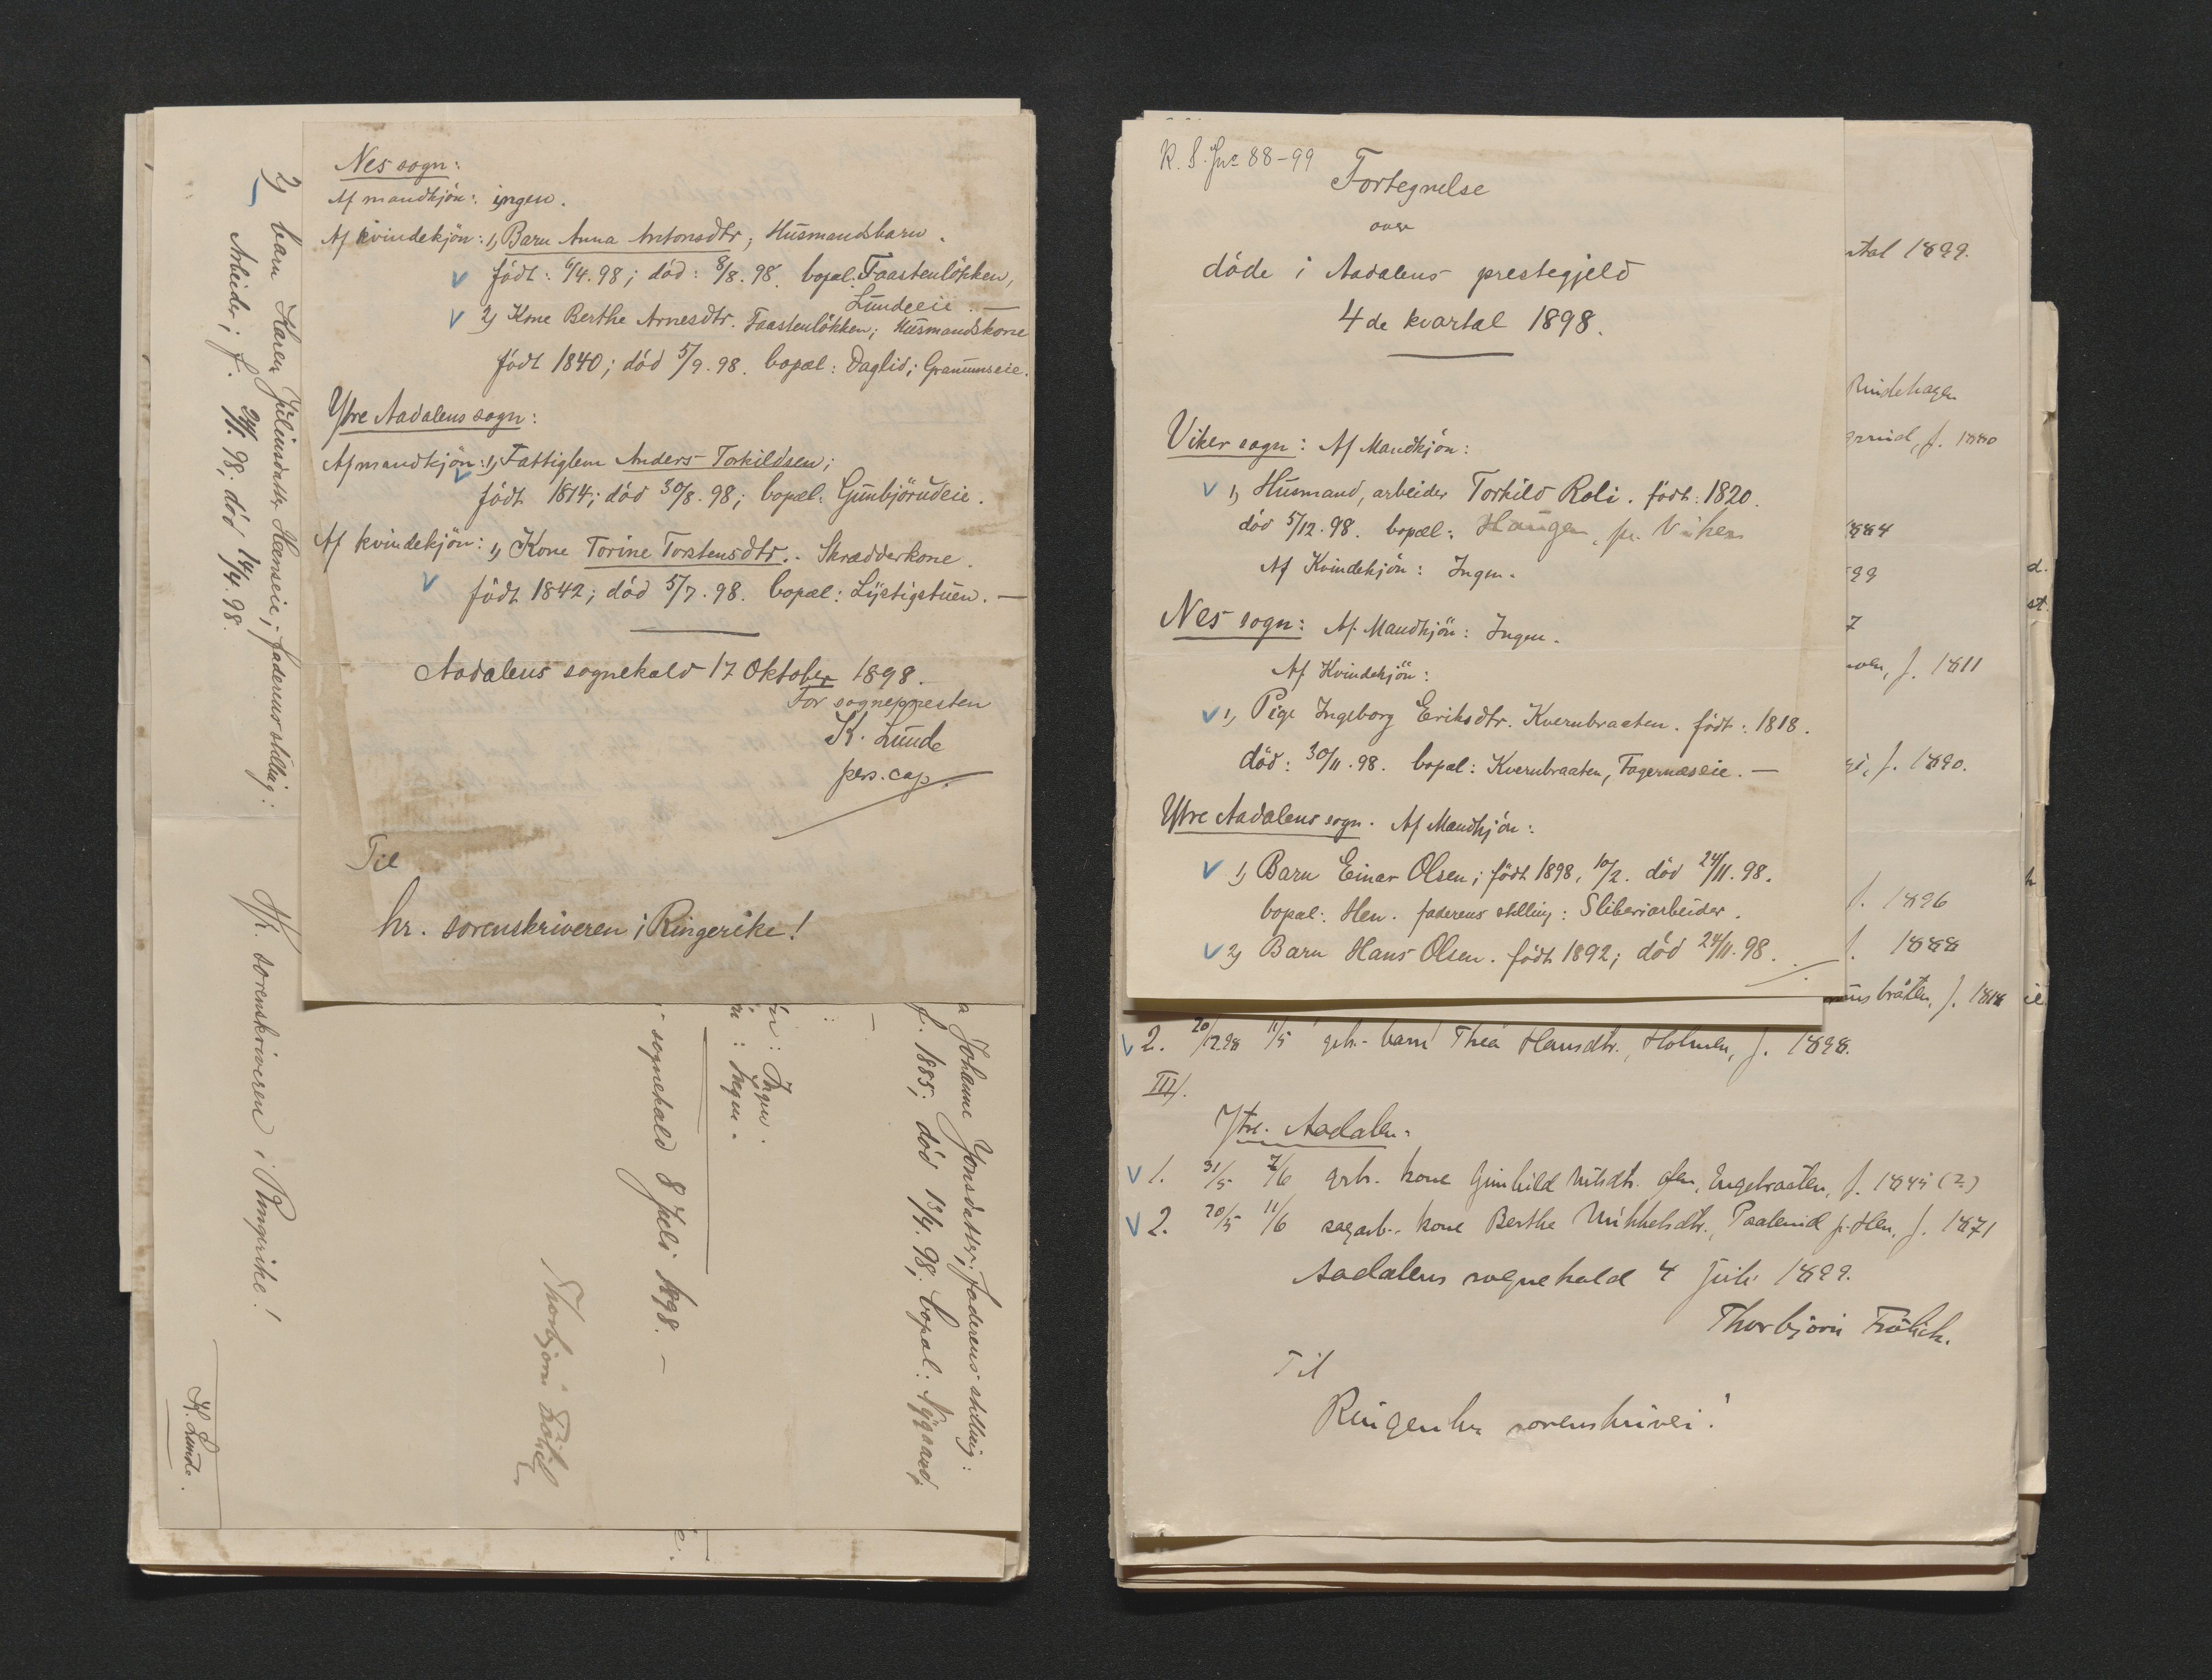 Nes sogn:
Af mandkjön: ingen.
Af kvindekjön: 1) Barn Anna Antonsdtr; Husmandsbarn.
födt: 6/4.98; död: 8/8.98. bopæl: Faastenlökken,
Lundeeie. —
2) Kone Berthe Arnesdtr. Faastenlökken; Husmandskone
födt 1840; död 5/9.98. bopæl: Daglid; Granumseie.
Ytre Aadalens sogn:
Af mandkjön: 1) Fattiglem Anders Torkildsen;
födt 1814; död 30/8.98; bopæl: Gunbjörudeie.
Af kvindekjön: 1) Kone Torine Torstensdtr. Skrædderkone.
födt 1842; död 5/7.98. bopæl: Lystigstuen. —
Aadalens sognekald 17 Oktober 1898.
For sognepresten
K. Lunde
pers. cap.
Til
hr. sorenskriveren i Ringerike!
2) barn Karen Juliusdatter Hænseie; faderens stilling:
Arbeider; f. 24/1.98; död 14/4.98.
Hr. sorenskriveren i Ringerike!
K. Lunde.
a Johanne Jonsdatter; faderens stilling:
f. 1885; död 13/4.98; bopæl:
ön: Ingen.
n: Ingen.
sognekald 8 juli 1898. —
Thorbjörn Frölich
R. S. Jnr 88-99
Fortegnelse
over
döde i Aadalens prestegjeld
4de kvartal 1898.
Viker sogn: Af Mandkjön:
1) Husmand, arbeider Torkild Roli. födt: 1820.
död 5/12.98. bopæl: Haugen, pr. Viken
Af Kvindekjön: Ingen.
Nes sogn: Af Mandkjön: Ingen.
Af Kvindekjön:
1) Pige Ingeborg Eriksdtr. Kvernbraaten. födt: 1818.
död: 30/11.98. bopæl: Kvernbraaten, Fagernæseie. —
Ytre Aadalens sogn. Af Mandkjön:
1) Barn Einar Olsen; födt 1898, 10/2. död 24/11.98.
bopæl: Hen. faderens stilling: Sliberiarbeider.
2) Barn Hans Olsen. födt 1892; död 24/11.98.
rtal 1899.
Rindehagen
grund, f. 1880
1884
99
7
f. 1811
f. 1890.
f. 1896
f. 1888
bråten, f. 1818
2. 20/12 98 11/5 gbr.- barn Thea Hansdtr., Holmen, f. 1898.
III).
Ytre Aadalen.
1. 31/5 7/6 grbr. kone Gunhild Nilsdtr. Engebraaten, f. 1845 (?)
2. 20/5 11/6 sagarb.- kone Berthe Mikkelsdtr., p. Hen, f. 1871
Aadalens sognekald 4 juli 1899.
Thorbjörn Frölich.
Til
Ringerike sorenskriveri!
d.
st.